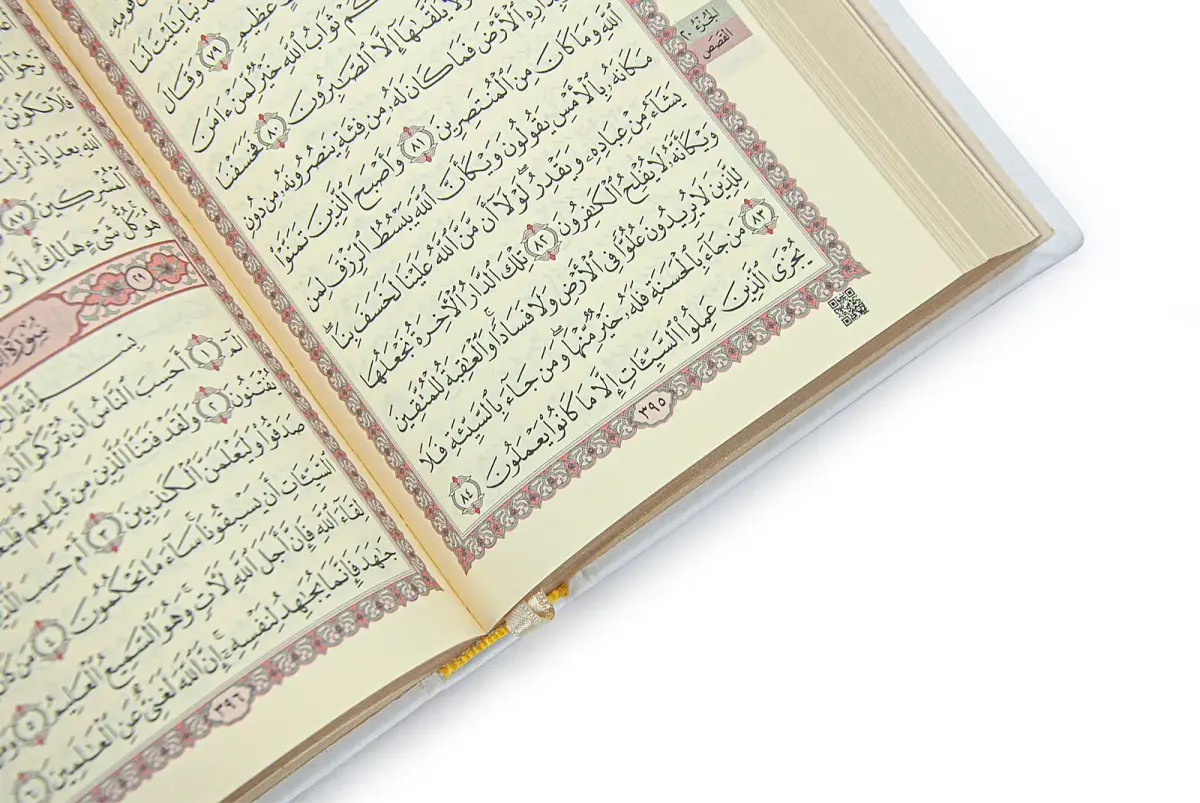 الجزء ٢٠
القصص
يَٰلَيْتَ لَنَا
عَظِيمٍ ٧٩ وَقَالَ
ثَوَابُ ٱللَّهِ خَيْرٌ لِّمَنْ ءَامَنَ
وَلَا يُلَقَّىٰهَآ إِلَّا ٱلصَّٰبِرُونَ ٨٠ فَخَسَفْنَا
ٱلْأَرْضَ فَمَا كَانَ لَهُۥ مِن فِئَةٍ يَنصُرُونَهُۥ مِن دُونِ
ٱللَّهِ وَمَا كَانَ مِنَ ٱلْمُنتَصِرِينَ ٨١ وَأَصْبَحَ ٱلَّذِينَ تَمَنَّوْا۟
مَكَانَهُۥ بِٱلْأَمْسِ يَقُولُونَ وَيْكَأَنَّ ٱللَّهَ يَبْسُطُ ٱلرِّزْقَ لِمَن
يَشَآءُ مِنْ عِبَادِهِۦ وَيَقْدِرُ ۖ لَوْلَآ أَن مَّنَّ ٱللَّهُ عَلَيْنَا لَخَسَفَ بِنَا ۖ
وَيْكَأَنَّهُۥ لَا يُفْلِحُ ٱلْكَٰفِرُونَ ٨٢ تِلْكَ ٱلدَّارُ ٱلْءَاخِرَةُ نَجْعَلُهَا
لِلَّذِينَ لَا يُرِيدُونَ عُلُوًّا فِى ٱلْأَرْضِ وَلَا فَسَادًا ۚ وَٱلْعَٰقِبَةُ لِلْمُتَّقِينَ
٨٣ مَن جَآءَ بِٱلْحَسَنَةِ فَلَهُۥ خَيْرٌ مِّنْهَا ۖ وَمَن جَآءَ بِٱلسَّيِّئَةِ فَلَا
يُجْزَى ٱلَّذِينَ عَمِلُوا۟ ٱلسَّيِّـَٔاتِ إِلَّا مَا كَانُوا۟ يَعْمَلُونَ ٨٤
٣٩٥
فَلَا تَكُونَنَّ
ٱللَّهِ بَعْدَ إِذْ أُنزِلَتْ
ٱلْمُشْرِكِينَ ٨٧
هُوَ ۚ كُلُّ شَىْءٍ هَالِكٌ إِلَّا
٢٩
سُورَةُ
بِسْمِ ٱللَّهِ
الٓمٓ ١ أَحَسِبَ ٱلنَّاسُ أَن يُتْرَكُوٓا۟ أَن
يُفْتَنُونَ ٢ وَلَقَدْ فَتَنَّا ٱلَّذِينَ مِن قَبْلِهِمْ ۖ
صَدَقُوا۟ وَلَيَعْلَمَنَّ ٱلْكَٰذِبِينَ ٣ أَمْ حَسِبَ
ٱلسَّيِّـَٔاتِ أَن يَسْبِقُونَا ۚ سَآءَ مَا يَحْكُمُونَ ٤ مَن
لِقَآءَ ٱللَّهِ فَإِنَّ أَجَلَ ٱللَّهِ لَءَاتٍ ۚ وَهُوَ ٱلسَّمِيعُ ٱلْعَلِيمُ ٥
جَٰهَدَ فَإِنَّمَا يُجَٰهِدُ لِنَفْسِهِۦٓ ۚ إِنَّ ٱللَّهَ لَغَنِىٌّ عَنِ ٱلْعَٰلَمِينَ ٦
٣٩٦